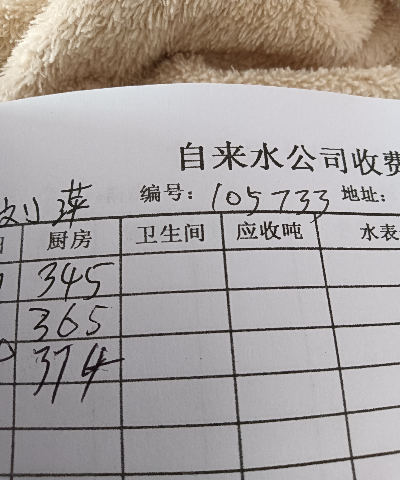 自来水公司收费
刘萍 编号: 105733 地址:
厨房 卫生间 应收吨 水表
345
365
374